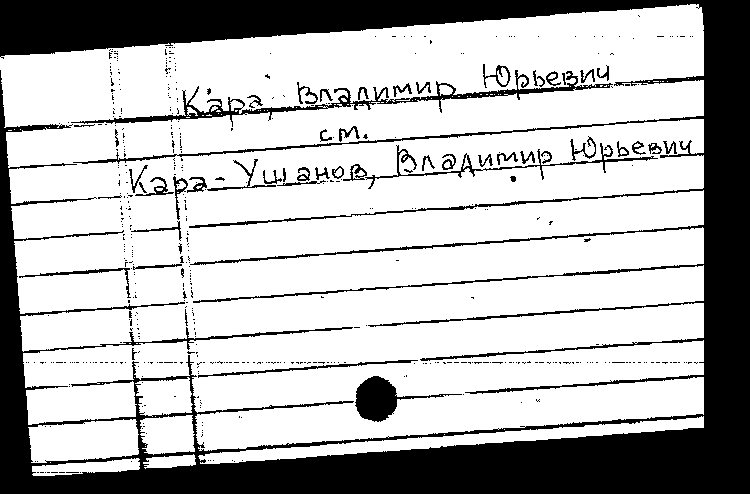 Кара, Владимир Юрьевич
см.
Кара-Ушанов, Владимир Юрьевич